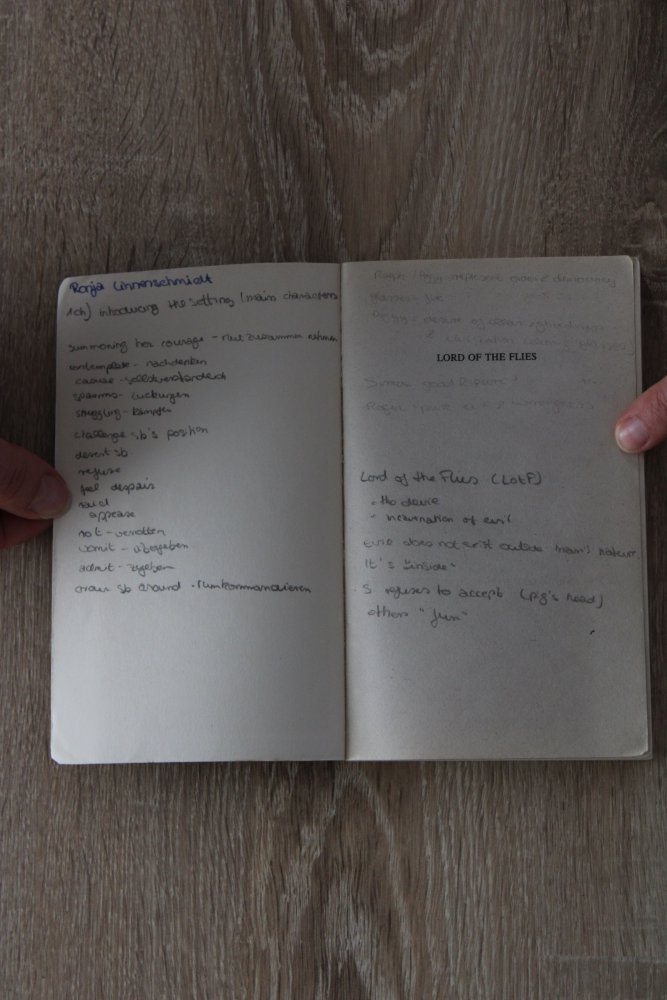 Ronja Linnenschmidt
1ch) introducing the setting / main characters
summoning her courage - Mut zusammen nehmen
contemplate - nachdenken
casual - selbstverständlich
spasms - Zuckungen
struggling - kämpfen
challenge sb's position
desert sb
refuse
feel despair
appease
rot - verrotten
vomit - übergeben
admit - zugeben
order sb around - rumkommandieren
Ralph / Piggy represent order & democracy
Piggy - desire of
&
LORD OF THE FLIES
Simon good
Roger pure evil
Lord of the Flies (LotF)
- the devil
- incarnation of evil
evil does not exist outside man's nature
It's "inside"
S refuses to accept (pig's head)
others "fun"